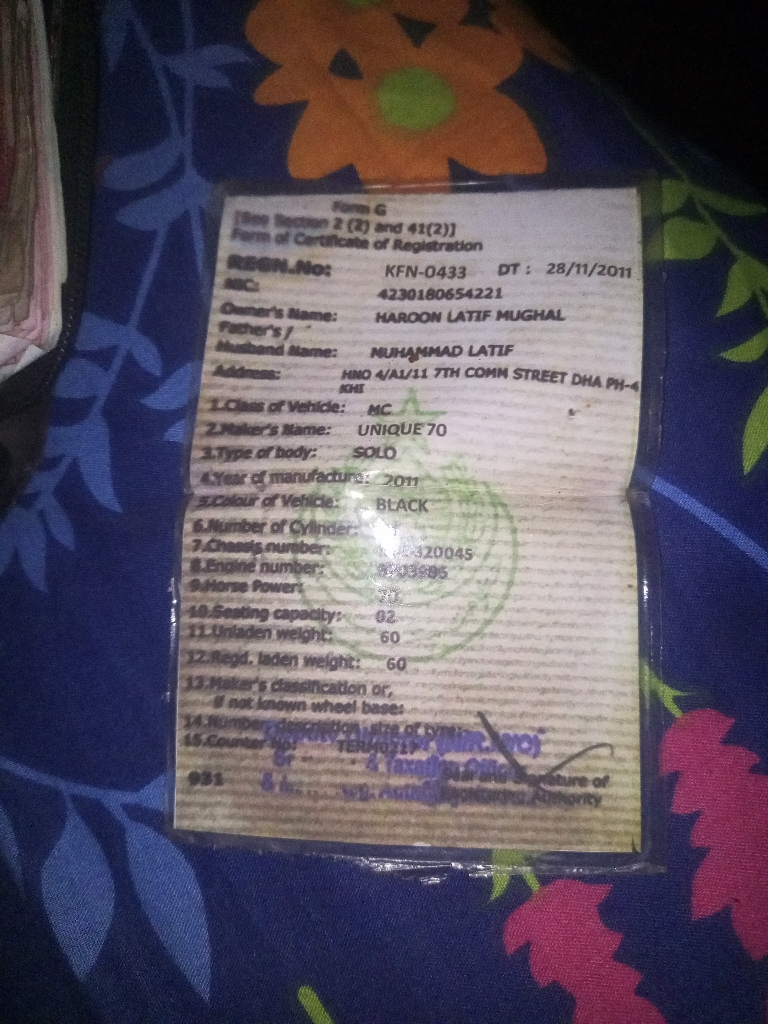 Form G
[See Section 2 (2) and 41(2)]
Form of Certificate of Registration
REGN.No: KFN-0433 DT : 28/11/2011
NIC: 4230180654221
Owner's Name: HAROON LATIF MUGHAL
Father's /
Husband Name: MUHAMMAD LATIF
Address: HNO 4/A1/11 7TH COMM STREET DHA PH-4
KHI
1.Class of Vehicle: MC
2.Maker's Name: UNIQUE 70
3.Type of body: SOLO
4.Year of manufacture: 2011
5.Colour of Vehicle: BLACK
6.Number of Cylinder:
7.Chassis number:
8.Engine number:
9.Horse Power: 70
10.Seating capacity: 02
11.Unladen weight: 60
12.Regd. laden weight: 60
13.Maker's classification or,
if not known wheel base:
14.Number, description, size of type:
15.Counter No: TERM0217
& Taxation
931 Seal and Signature of
Registering Authority